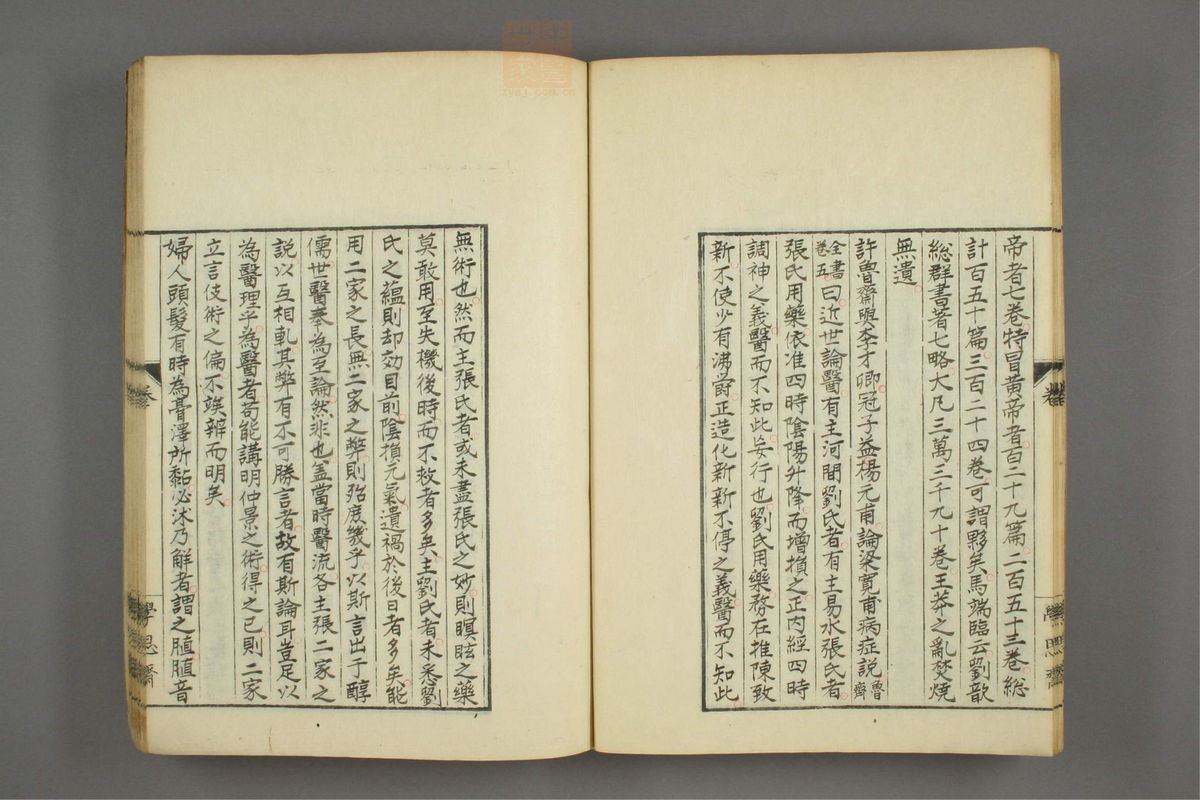 帝者七卷特冒黃帝者百二十九篇二百五十三卷総
計百五十篇三百二十四卷可謂夥矣馬端臨云劉歆
総群書著七略大凡三萬三千九十卷王莽之亂焚燒
無遺
許魯齋與李才卿冠子益楊元甫論梁寬甫病症説魯齋
全書卷五曰近世論醫有主河間劉氏者有主易水張氏者
張氏用藥依准四時陰陽升降而增損之正内經四時
調神之義醫而不知此妄行也劉氏用藥務在推陳致
新不使少有沸鬱正造化新新不停之義醫而不知此
無術也然而主張氏者或未盡張氏之妙則瞑眩之藥
莫敢用至失機後時而不救者多矣主劉氏者未悉劉
氏之蘊則却効目前陰損元氣遺禍於後日者多矣能
用二家之長無二家之弊則殆庶幾乎以斯言出于醇
儒世醫奉為至論然非也盖當時醫流各主張二家之
説以互相軋其弊有不可勝言者故有斯論耳豈足以
為醫理乎為醫者苟能講明仲景之術得之已則二家
立言伎術之偏不竢辨而明矣
婦人頭髮有時為膏澤所黏必沐乃解者謂之䐈䐈音
卷
學思齋
卷
學思齋
zysj.com.cn